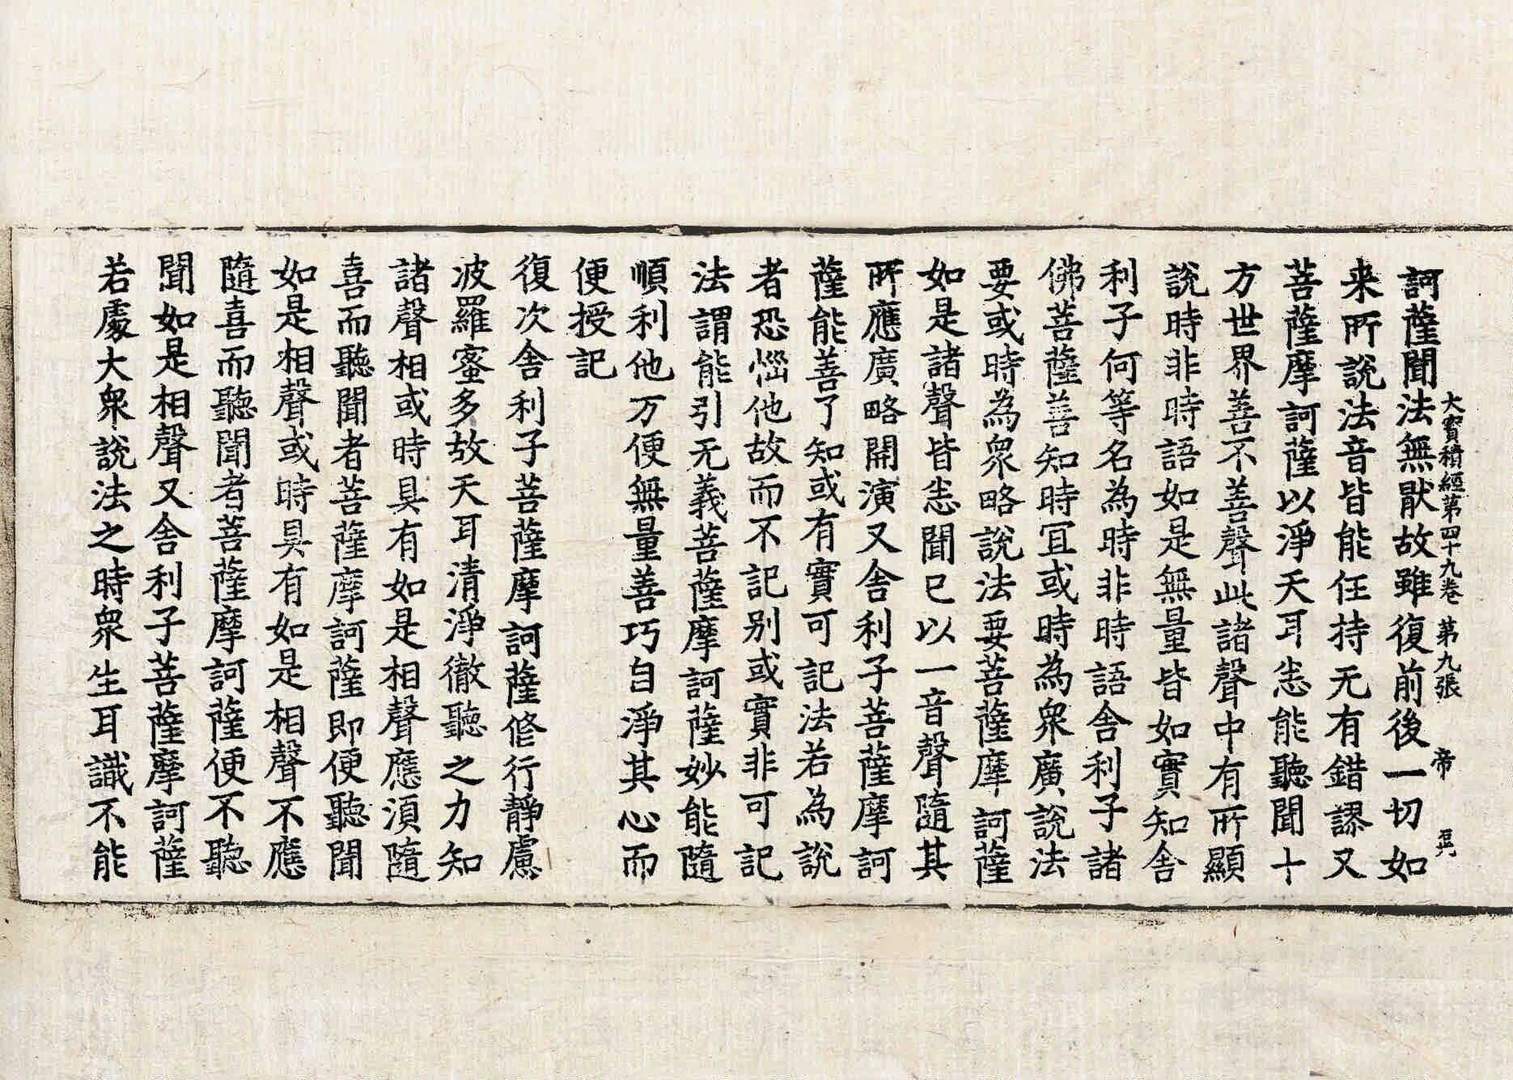 大寶積經第四十九卷 第九張 帝
訶薩聞法無猒故雖復前後一切如
来所說法音皆能任持无有錯謬又
菩薩摩訶薩以淨天耳悉能聽聞十
方世界善不善聲此諸聲中有所顯
說時非時語如是無量皆如實知舍
利子何等名為時非時語舍利子諸
佛菩薩善知時冝或時為衆廣說法
要或時為衆略說法要菩薩摩訶薩
如是諸聲皆悉聞已以一音聲隨其
所應廣略開演又舍利子菩薩摩訶
薩能善了知或有實可記法若為說
者恐惱他故而不記别或實非可記
法謂能引无義菩薩摩訶薩妙能隨
順利他方便無量善巧自淨其心而
便授記
復次舍利子菩薩摩訶薩修行靜慮
波羅蜜多故天耳清淨徹聽之力知
諸聲相或時具有如是相聲應湏隨
喜而聽聞者菩薩摩訶薩即便聽聞
如是相聲或時具有如是相聲不應
隨喜而聽聞者菩薩摩訶薩便不聽
聞如是相聲又舍利子菩薩摩訶薩
若處大衆說法之時衆生耳識不能